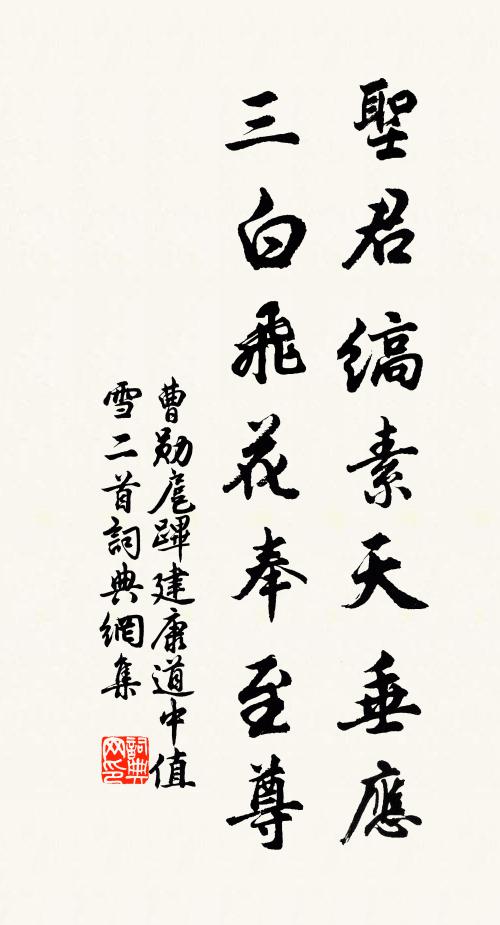 聖君縞素天垂應
三白飛花奉至尊
曹勛扈蹕建康道中值
雪二首詞典網集
詞典網印